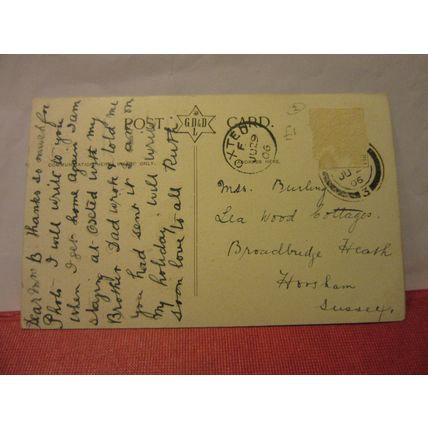 POST CARD.
GD&D
L
COMMUNICATION
ONLY
Dear Mrs B Thanks so much for
Photo I will write to you
when I get home again I am
staying at Oxted with my
Brother Dad wrote & told me
you had sent it &
my holiday will write
soon love to all Ruth
OXTED
F
JU 29
06
JU
06
3
Mrs. Burling
Lea Wood Cottages.
Broadbridge Heath
Horsham
Sussex.